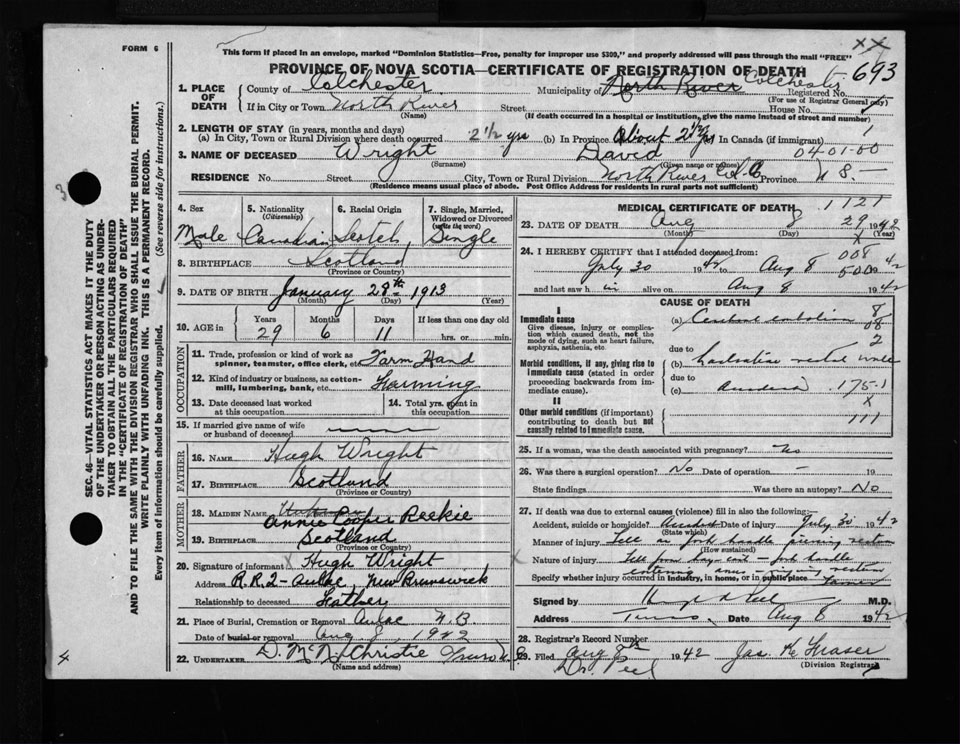 FORM 6
This form if placed in an envelope, marked "Dominion Statistics—Free, penalty for improper use $300," and properly addressed will pass through the mail "FREE"
xx
PROVINCE OF NOVA SCOTIA—CERTIFICATE OF REGISTRATION OF DEATH 693
1. PLACE OF DEATH
County of Colchester Municipality of North River Colchester Registered No.
(For use of Registrar General only)
If in City or Town North River Street House No.
(Name) (If death occurred in a hospital or institution, give the name instead of street and number)
2. LENGTH OF STAY (in years, months and days)
(a) In City, Town or Rural Division where death occurred 2 1/2 yrs (b) In Province About 2 1/2 yrs In Canada (if immigrant) 1
3. NAME OF DECEASED Wright David 04-01-00
(Surname) (Given name or names)
RESIDENCE No. Street City, Town or Rural Division North River Col. Co Province N S.
(Residence means usual place of abode. Post Office Address for residents in rural parts not sufficient)
4. Sex
Male
5. Nationality (Citizenship)
Canadian
6. Racial Origin
Scotch
7. Single, Married, Widowed or Divorced (write the word)
Single
8. BIRTHPLACE Scotland
(Province or Country)
9. DATE OF BIRTH January 28th 1913
(Month) (Day) (Year)
10. AGE in Years Months Days If less than one day old
29 6 11 hrs. or min.
OCCUPATION
11. Trade, profession or kind of work as spinner, teamster, office clerk, etc. Farm Hand
12. Kind of industry or business, as cotton-mill, lumbering, bank, etc. Farming
13. Date deceased last worked at this occupation
14. Total yrs. spent in this occupation
15. If married give name of wife or husband of deceased
FATHER
16. NAME Hugh Wright
17. BIRTHPLACE Scotland
(Province or Country)
MOTHER
18. MAIDEN NAME Annie Cooper Reekie
19. BIRTHPLACE Scotland
(Province or Country)
20. Signature of informant Hugh Wright
Address R.R.2 - Aulac, New Brunswick
Relationship to deceased Father
21. Place of Burial, Cremation or Removal Aulac N.B
Date of burial or removal Aug 8, 1942
22. UNDERTAKER D. McN. Christie Truro N.S
(Name and address)
MEDICAL CERTIFICATE OF DEATH 1121
23. DATE OF DEATH Aug 8 29 1942
(Month) (Day) (Year)
x
24. I HEREBY CERTIFY that I attended deceased from: 008
July 30 1942 to Aug 8 500 1942
and last saw h im alive on Aug 8 1942
CAUSE OF DEATH
I
Immediate cause
Give disease, injury or complication which caused death, not the mode of dying, such as heart failure, asphyxia, asthenia, etc.
(a) Cerebral embolism
8
08
2
due to
Morbid conditions, if any, giving rise to immediate cause (stated in order proceeding backwards from immediate cause).
(b) rectal
due to
(c) 175-1
x
II
Other morbid conditions (if important) contributing to death but not causally related to immediate cause.
111
25. If a woman, was the death associated with pregnancy? No
26. Was there a surgical operation? No Date of operation - 19
State findings Was there an autopsy? No
27. If death was due to external causes (violence) fill in also the following:
Accident, suicide or homicide? Accident Date of injury July 30 1942
(State which)
Manner of injury Fell on fork handle piercing rectum
(How sustained)
Nature of injury Fell from hay - fork handle
entering anus - rectum
Specify whether injury occurred in industry, in home, or in public place
Signed by M.D.
Address Truro Date Aug 8 1942
28. Registrar's Record Number
29. Filed Aug 8th 1942 Jas. K Fraser
(Division Registrar)
Dr. Peel
SEC. 46—VITAL STATISTICS ACT MAKES IT THE DUTY
OF THE UNDERTAKER OR PERSON ACTING AS UNDER-
TAKER TO OBTAIN ALL THE PARTICULARS REQUIRED
IN THE "CERTIFICATE OF REGISTRATION OF DEATH"
AND TO FILE THE SAME WITH THE DIVISION REGISTRAR WHO SHALL ISSUE THE BURIAL PERMIT.
WRITE PLAINLY WITH UNFADING INK. THIS IS A PERMANENT RECORD.
Every item of information should be carefully supplied. (See reverse side for instructions.)